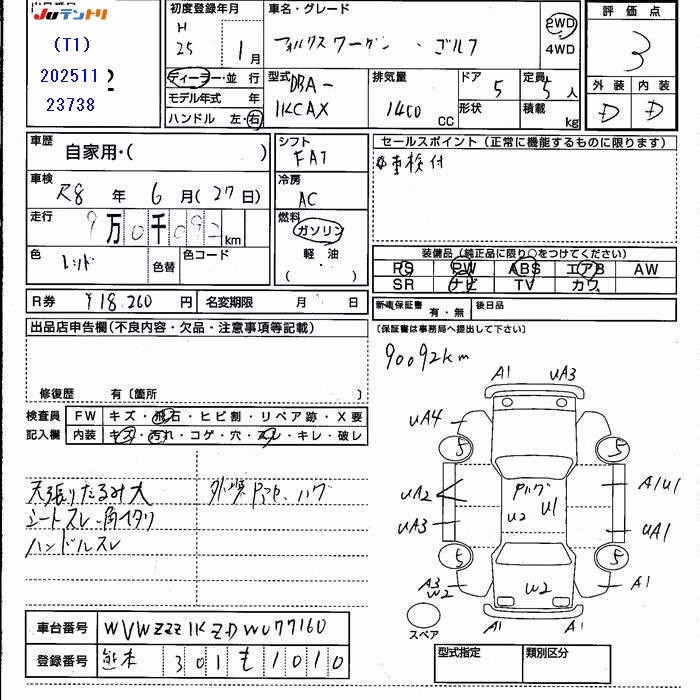 Juテントリ
(T1)
202511
23738
初度登録年月
H
25 1月
車名・グレード
フォルクスワーゲン ・ ゴルフ
2WD
4WD
評価点
3
外装 内装
D D
ディーラー・並 行
モデル年式 年
ハンドル 左・右
型式 DBA-
1KCAX
排気量
1400 CC
ドア 5
形状
定員 5人
積載 kg
車歴
自家用・( )
車検
R8 年 6 月(27日)
走行
9万0千092km
色 レッド 色替 色コード
シフト
FAT
冷房
AC
燃料
ガソリン
軽・油
( )
セールスポイント(正常に機能するものに限ります)
車検付
装備品(純正品に限り○をつけてください)
PS PW ABS エアB AW
SR ナビ TV カワ
R券 ¥18,260 円 名変期限 月 日
新車保証書 有・無 後日品
(保証書は事務局へ提出して下さい)
出品店申告欄(不良内容・欠品・注意事項等記載)
修復歴 有〔箇所 〕
90092km
検査員
記入欄
FW キズ・飛石・ヒビ割・リペア跡・X要
内装 キズ・汚れ・コゲ・穴・スレ・キレ・破レ
天張りたるみ大
シートスレ
ハンドルスレ
A1 UA3
UA4
5 5
UA2
UA3
U2 U1
A1U1
UA1
5 5
A3
W2
W2
A1
A1 A1
スペア
車台番号 WVWZZZ1KZDW077160
登録番号 熊本 301 も 1010
型式指定 類別区分